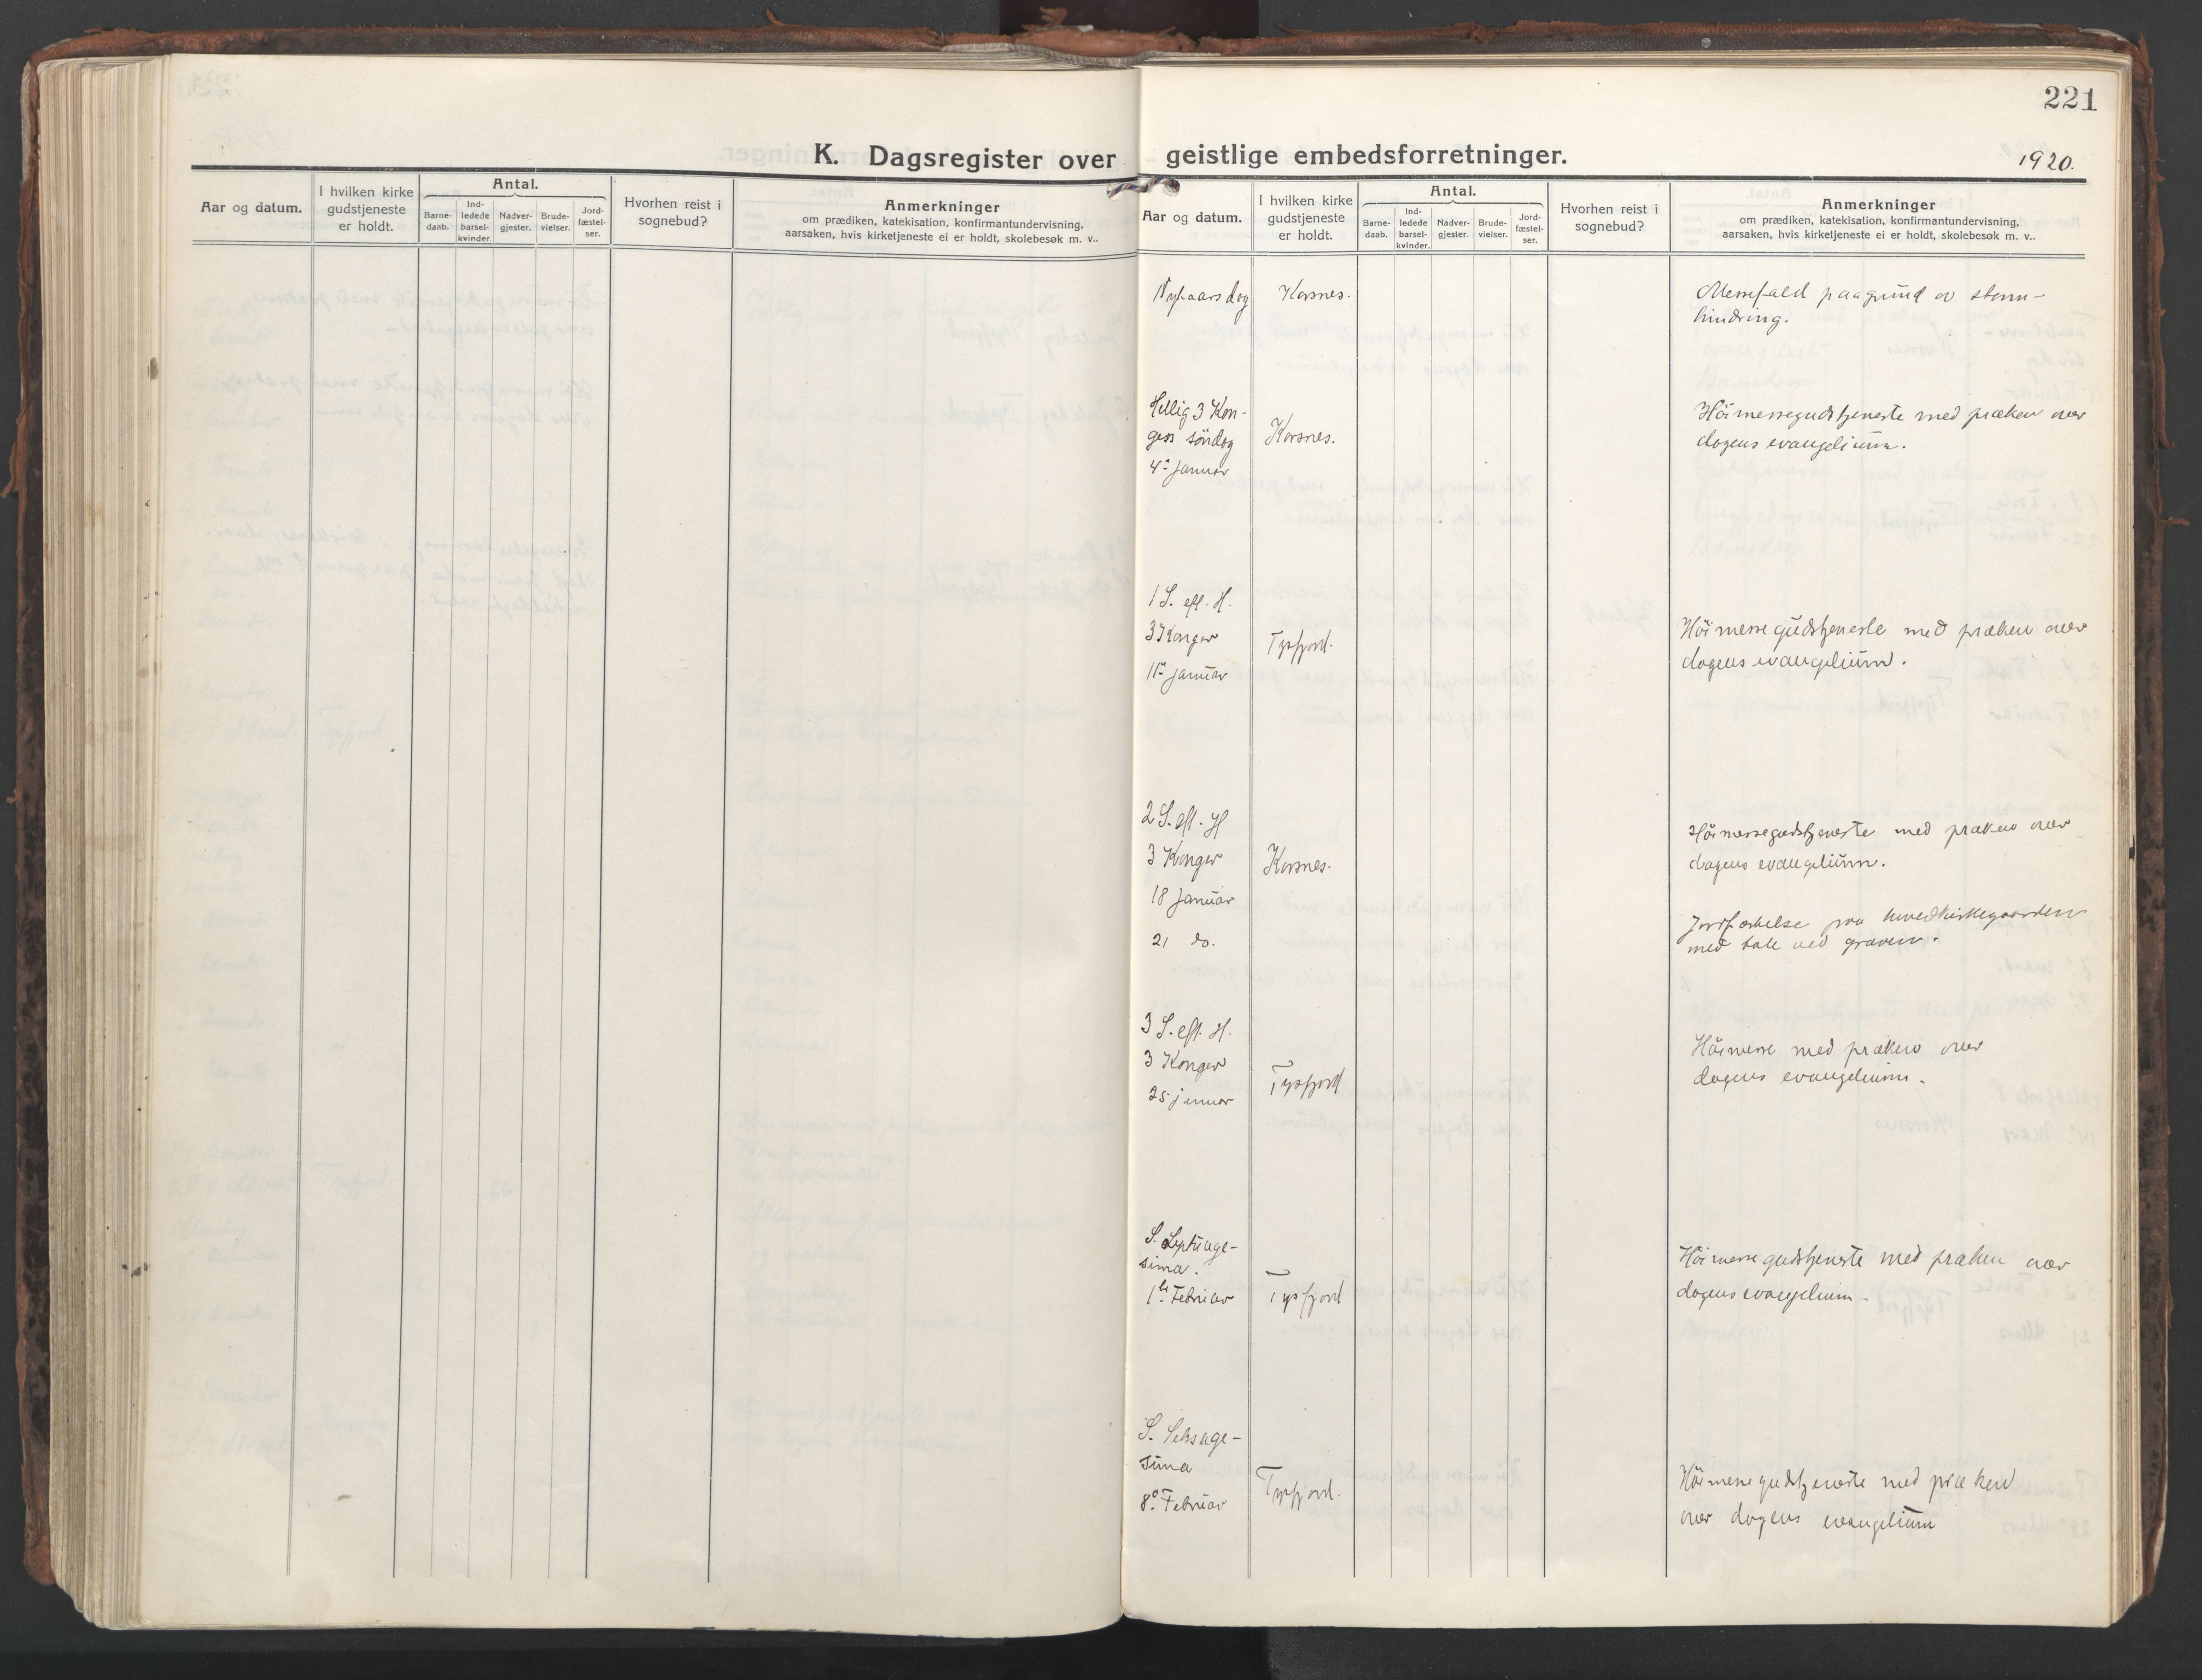 221
K. Dagsregister over geistlige embedsforretninger.
1920.
Aar og datum.
I hvilken kirke
gudstjeneste
er holdt.
Antal.
Barne-
daab.
Ind-
ledede
barsel-
kvinder.
Nadver-
gjester.
Brude-
vielser.
Jord-
fæstel-
ser.
Hvorhen reist i
sognebud?
Anmerkninger
om prædiken, katekisation, konfirmantundervisning,
aarsaken, hvis kirketjeneste ei er holdt, skolebesøk m. v..
Aar og datum.
I hvilken kirke
gudstjeneste
er holdt.
Antal.
Barne-
daab.
Ind-
ledede
barsel-
kvinder.
Nadver-
gjester.
Brude-
vielser.
Jord-
fæstel-
ser.
Hvorhen reist i
sognebud?
Anmerkninger
om prædiken, katekisation, konfirmantundervisning,
aarsaken, hvis kirketjeneste ei er holdt, skolebesøk m. v..
Nytaarsdag Korsnes. Messefald paagrund av storm-
hindring.
Hellig 3 Kon-
gers söndag Korsnes. Höimessegudstjeneste med præken over
dagens evangelium.
4. januar
1 S. eft. H.
3 Konger Tysfjord. Höimessegudstjeneste med præken over
11. januar dagens evangelium.
2 S. eft. H
3 Konger Korsnes. Höimessegudstjeneste med præken over
dagens evangelium.
18 januar
21 do. Jordfæstelse paa hovedkirkegaarden
med tale ved graven.
3 S. eft. H.
3 Konger Tysfjord Höimesse med præken over
25 januar dagens evangelium.
S. Septuage-
sima.
1. Februar Tysfjord Höimessegudstjeneste med præken over
dagens evangelium.
S. Seksage-
sima
8. Februar Tysfjord. Höimessegudstjeneste med præken
over dagens evangelium